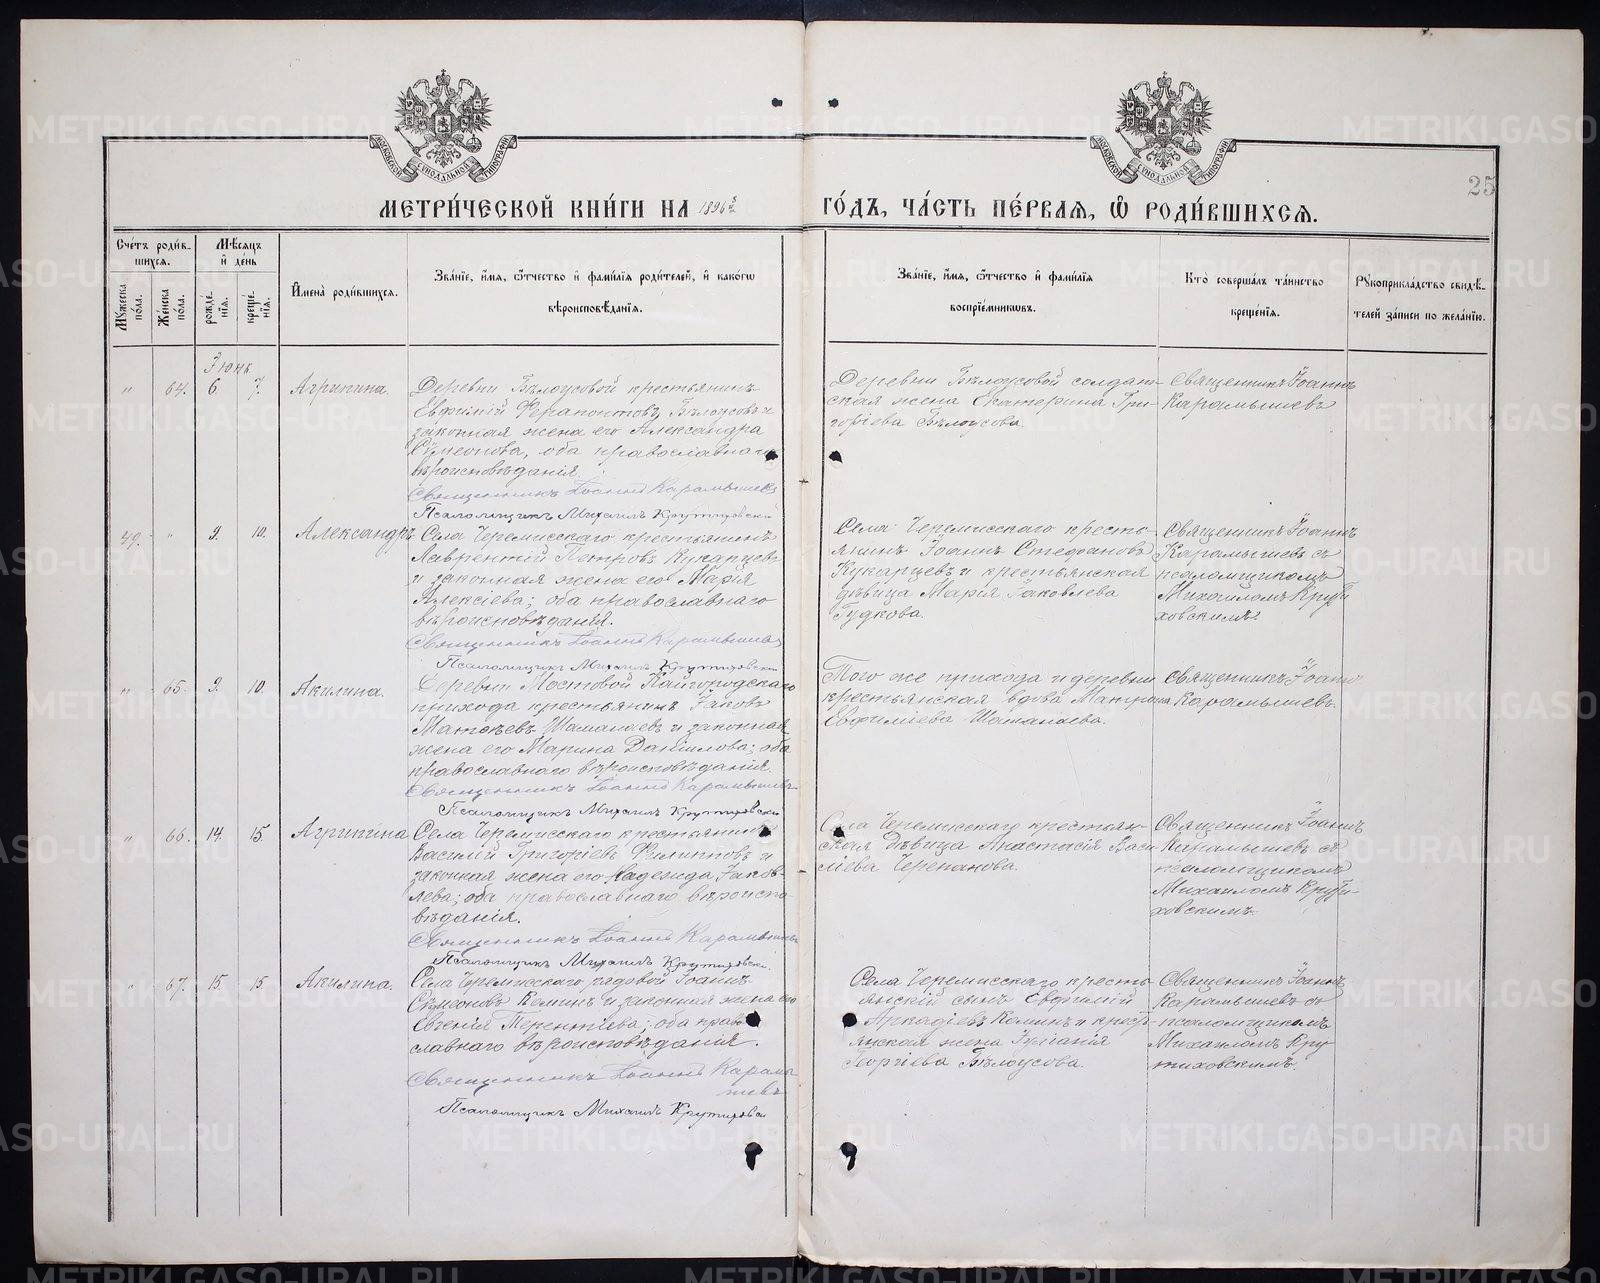 МОСКОВСКОЙ СѴНОДАЛЬНОЙ ТИПОГРАФІИ
МОСКОВСКОЙ СѴНОДАЛЬНОЙ ТИПОГРАФІИ
25
МЕТРИ́ЧЕСКОЙ КНИ́ГИ НА 1896
ГО́ДЪ, ЧА́СТЬ ПЕ́РВАЯ, Ѿ РОДИ́ВШИХСЯ.
Сче́тъ роди́в-
шихся.
Мѣ́сяцъ
и де́нь
Мꙋ́жеска
по́ла.
Же́нска
по́ла.
рожде́-
нїя.
креще́-
нїя.
Имена̀ роди́вшихся.
Зва́нїе, и́мя, ѻ́тчество и фами́лїя роди́телей, и како́гѡ
вѣроисповѣ́данїя.
Зва́нїе, и́мя, ѻ́тчество и фами́лїя
воспрїе́мникѡвъ.
Кто̀ соверша́лъ та́инство
креще́нїя.
Рꙋкоприкла́дство свидѣ́-
телей за́писи по жела́нїю.
Іюнь
" 64. 6. 7. Агрипина.
Деревни Бѣлоусовой крестьянинъ
Евфимій Ферапонтовъ Бѣлоусовъ и
законная жена его Александра
Сѵмеонова, оба православнаго
вѣроисповѣданія.
Священникъ Іоаннъ Карамышевъ
Псаломщикъ Михаилъ Крутиховскій
Деревни Бѣлоусовой солдат-
ская жена Екатерина Гри-
горіева Бѣлоусова.
Священникъ Іоаннъ
Карамышевъ
49. " 9. 10. Александръ
Села Черемисскаго крестьянинъ
Лаврентій Петровъ Кукарцевъ
и законная жена его Марія
Алексіева; оба православнаго
вѣроисповѣданія.
Священникъ Іоаннъ Карамышевъ
Псаломщикъ Михаилъ Крутиховскій
Села Черемисскаго кресть-
янинъ Іоаннъ Стефановъ
Кукарцевъ и крестьянская
дѣвица Марія Іаковлева
Гудкова.
Священникъ Іоаннъ
Карамышевъ съ
псаломщикомъ
Михаиломъ Крути
ховскимъ
" 65. 9. 10. Акилина.
Деревни Мостовой Кайгородскаго
прихода крестьянинъ Іаковъ
Матѳѣевъ Шаманаевъ и законная
жена его Марина Даніилова; оба
православнаго вѣроисповѣданія.
Священникъ Іоаннъ Карамышевъ
Псаломщикъ Михаилъ Крутиховскій
Того же прихода и деревни
крестьянская вдова Матрона
Евфимиева Шаманаева.
Священникъ Іоаннъ
Карамышевъ.
" 66. 14. 15. Агрипина
Села Черемисскаго крестьянинъ
Василій Григоріевъ Филипповъ и
законная жена его Надежда Іаков-
лева; оба православнаго вѣроиспо-
вѣданія.
Священникъ Іоаннъ Карамышевъ
Псаломщикъ Михаилъ Крутиховскій
Села Черемисскаго крестьян-
ская дѣвица Анастасія Васи
ліева Черепанова.
Священникъ Іоаннъ
Карамышевъ съ
псаломщикомъ
Михаиломъ Крути-
ховскимъ.
" 67. 15. 15. Акилина.
Села Черемисскаго рядовой Іоаннъ
Сѵмеоновъ Коминъ и законная жена его
Евгенія Терентіева; оба право
славнаго вѣроисповѣданія.
Священникъ Іоаннъ Карамы
шевъ
Псаломщикъ Михаилъ Крутиховскій
Села Черемисскаго кресть-
янскій сынъ Евфимій
Аркадіевъ Коминъ и кресть-
янская жена
Георгіева Бѣлоусова.
Священникъ Іоаннъ
Карамышевъ съ
псаломщикомъ
Михаиломъ Кру
тиховскимъ.
METRIKI.GASO-URAL.RU